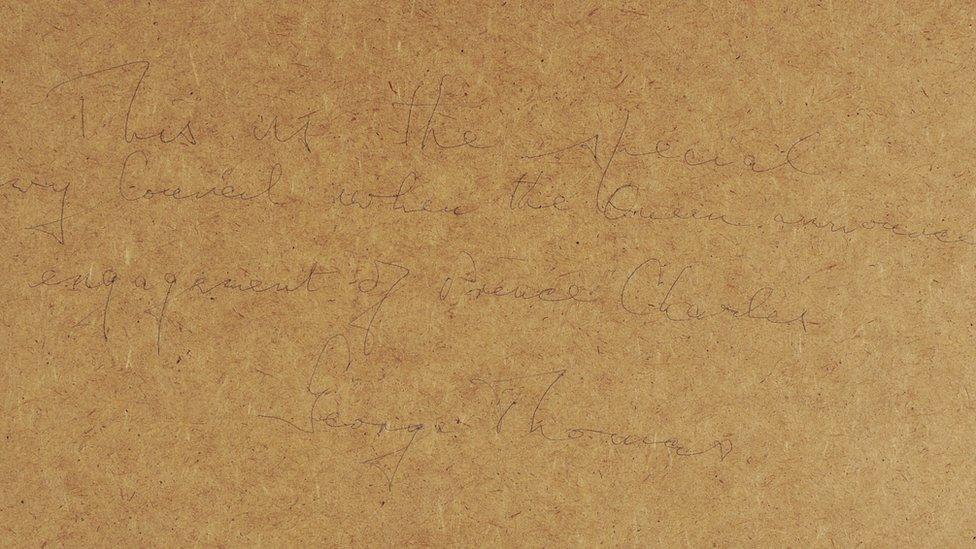 This is the special
ivy Council when the Queen announce
engagement of Prince Charles
George Thomas